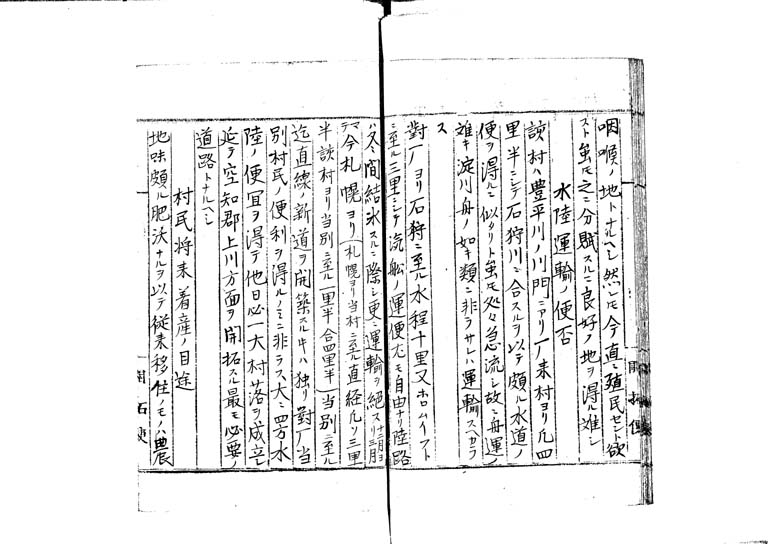 咽喉ノ地トナルヘシ然レモ今直ニ殖民セント欲
スト虽モ之ニ分賦スルニ良好ノ地ヲ得ル難シ
水陸運輸ノ便否
該村ハ豊平川ノ川門ニアリ一ノ来村ヨリ凡四
里半ニシテ石狩川ニ合スルヲ以テ頗ル水道ノ
便ヲ得ルニ似タリト虽モ处々急流シ故ニ舟運ノ
雖キ淀川舟ノ如キ類ニ非ラサレハ運輸スヘカラ
ス
對一ノヨリ石狩ニ至ル水程十里又ホロムイフト
ニ至ル三里ニシテ汽舩ノ運便尤モ自由ナリ陸路
ハ冬間結氷スルニ際シ更ニ運輸ヲ絶スリ十二月ヨリ三月
マテ今札幌ヨリ(札幌ヨリ当村ニ至ル直経凡ソ三里
半該村ヨリ当別ニ至ル一里半合四里半)当別ニ至ル
迄直線ノ新道ヲ開築スル牛ハ独リ對一ノ当
別村民ノ便利ヲ得ルノミニ非ラス大ニ四方水
陸ノ便宜ヲ得テ他日必一大村落ヲ成立シ
延テ空知郡上川方面ヲ開拓スル最モ必要ノ
道路トナルヘシ
村民将来着産ノ目途
地味頗ル肥沃ナルヲ以テ従来移住ノモノハ農
開拓使
開拓使